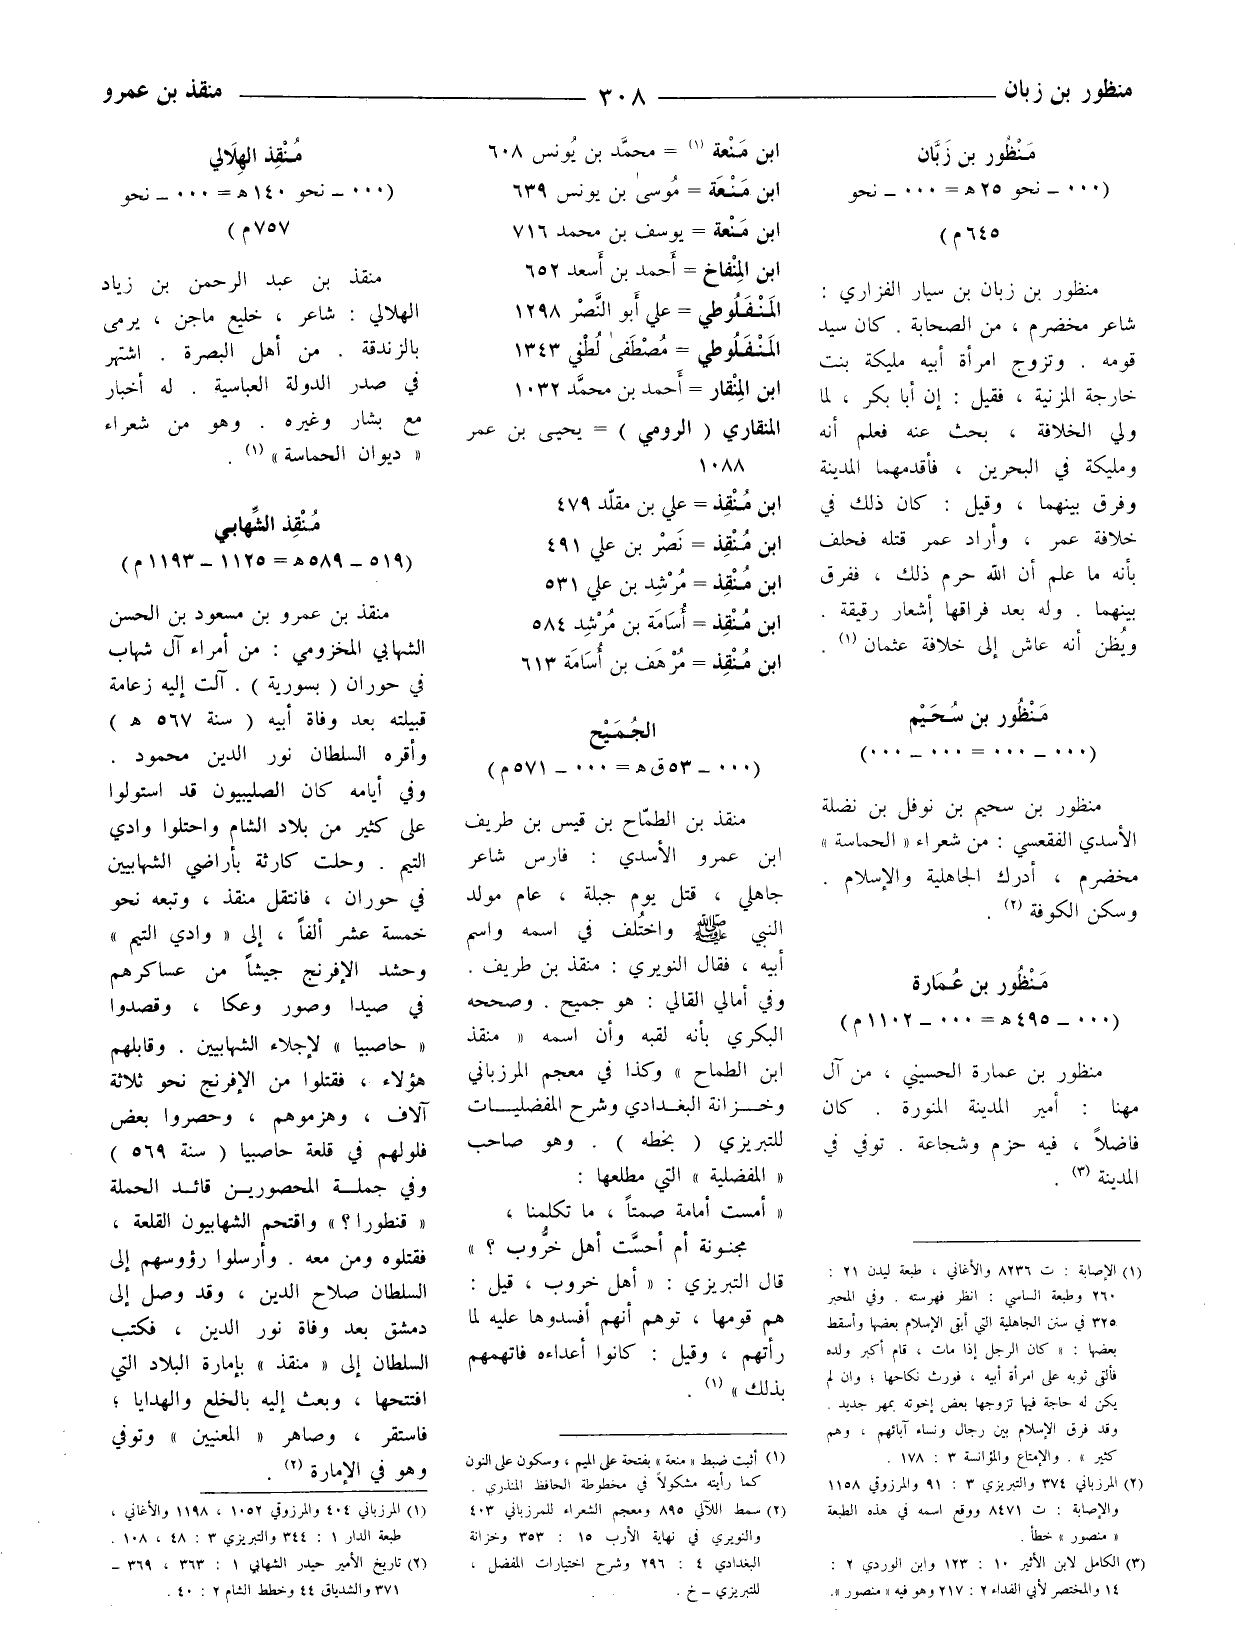 منظور بن زبان ــــــ ٣٠٨ ــــــ منقذ بن عمرو
مَنْظُور بن زَبَّان
(٠٠٠ ــ نحو ٢٥ هـ = ٠٠٠ ــ نحو
٦٤٥ م)
منظور بن زبان بن سيار الفزاري :
شاعر مخضرم ، من الصحابة . كان سيد
قومه . وتزوج امرأة أبيه مليكة بنت
خارجة المزنية ، فقيل : إن أبا بكر ، لما
ولي الخلافة ، بحث عنه فعلم أنه
ومليكة في البحرين ، فأقدمهما المدينة
وفرق بينهما ، وقيل : كان ذلك في
خلافة عمر ، وأراد عمر قتله فحلف
بأنه ما علم أن الله حرم ذلك ، ففرق
بينهما . وله بعد فراقها أشعار رقيقة .
ويُظن أنه عاش إلى خلافة عثمان (١) .
مَنْظُور بن سُحَيْم
(٠٠٠ ــ ٠٠٠ = ٠٠٠ ــ ٠٠٠)
منظور بن سحيم بن نوفل بن نضلة
الأسدي الفقعسي : من شعراء « الحماسة »
مخضرم ، أدرك الجاهلية والإسلام .
وسكن الكوفة (٢) .
مَنْظُور بن عُمَارة
(٠٠٠ ــ ٤٩٥ هـ = ٠٠٠ ــ ١١٠٢ م)
منظور بن عمارة الحسيني ، من آل
مهنا : أمير المدينة المنورة . كان
فاضلاً ، فيه حزم وشجاعة . توفي في
المدينة (٣) .
(١) الإصابة : ت ٨٢٣٦ والأغاني ، طبعة ليدن ٢١ :
٢٦٠ وطبعة الساسي : انظر فهرسته . وفي المحبر
٣٢٥ في سنن الجاهلية التي أبقى الإسلام بعضها وأسقط
بعضها : « كان الرجل إذا مات ، قام أكبر ولده
فألقى ثوبه على امرأة أبيه ، فورث نكاحها ؛ وان لم
يكن له حاجة فيها تزوجها بعض إخوته بمهر جديد .
وقد فرق الإسلام بين رجال ونساء آبائهم ، وهم
كثير » . والإمتاع والمؤانسة ٣ : ١٧٨ .
(٢) المرزباني ٣٧٤ والتبريزي ٣ : ٩١ والمرزوقي ١١٥٨
والإصابة : ت ٨٤٧١ ووقع اسمه في هذه الطبعة
« منصور » خطأ .
(٣) الكامل لابن الأثير ١٠ : ١٢٣ وابن الوردي ٢ :
١٤ والمختصر لأبي الفداء ٢ : ٢١٧ وهو فيه « منصور ».
ابن مَنْعة (١) = محمَّد بن يُونس ٦٠٨
ابن مَنْعَة = مُوسىٰ بن يونس ٦٣٩
ابن مَنْعة = يوسف بن محمد ٧١٦
ابن المِنْفاخ = أَحمد بن أَسعد ٦٥٢
المَنْفَلُوطي = علي أَبو النَّصْر ١٢٩٨
المَنْفَلُوطي = مُصْطَفىٰ لُطْفي ١٣٤٣
ابن المِنْقار = أَحمد بن محمَّد ١٠٣٢
المنقاري ( الرومي ) = يحيى بن عمر
١٠٨٨
ابن مُنْقِذ = علي بن مقلّد ٤٧٩
ابن مُنْقِذ = نَصْر بن علي ٤٩١
ابن مُنْقِذ = مُرْشِد بن علي ٥٣١
ابن مُنْقِذ = أُسَامَة بن مُرْشِد ٥٨٤
ابن مُنْقِذ = مُرْهَف بن أُسَامَة ٦١٣
الجُمَيْح
(٠٠٠ ــ ٥٣ ق هـ = ٠٠٠ ــ ٥٧١ م)
منقذ بن الطمّاح بن قيس بن طريف
ابن عمرو الأسدي : فارس شاعر
جاهلي ، قتل يوم جبلة ، عام مولد
النبي ﷺ واختُلف في اسمه واسم
أبيه ، فقال النويري : منقذ بن طريف .
وفي أمالي القالي : هو جميح . وصححه
البكري بأنه لقبه وأن اسمه « منقذ
ابن الطماح » وكذا في معجم المرزباني
وخزانة البغدادي وشرح المفضليات
للتبريزي ( بخطه ) . وهو صاحب
« المفضلية » التي مطلعها :
« أمست أمامة صمتاً ، ما تكلمنا ،
مجنونة أم أحسَّت أهل خرُّوب ؟ »
قال التبريزي : « أهل خروب ، قيل :
هم قومها ، توهم أنهم أفسدوها عليه لما
رأتهم ، وقيل : كانوا أعداءه فاتهمهم
بذلك » (١) .
(١) أثبت ضبط « منعة » بفتحة على الميم ، وسكون على النون
كما رأيته مشكولاً في مخطوطة الحافظ المنذري .
(٢) سمط اللآلي ٨٩٥ ومعجم الشعراء للمرزباني ٤٠٣
والنويري في نهاية الأرب ١٥ : ٣٥٣ وخزانة
البغدادي ٤ : ٢٩٦ وشرح اختيارات المفضل ،
للتبريزي ــ خ .
مُنْقِذ الهِلَالي
(٠٠٠ ــ نحو ١٤٠ هـ = ٠٠٠ ــ نحو
٧٥٧ م)
منقذ بن عبد الرحمن بن زياد
الهلالي : شاعر ، خليع ماجن ، يرمى
بالزندقة . من أهل البصرة . اشتهر
في صدر الدولة العباسية . له أخبار
مع بشار وغيره . وهو من شعراء
« ديوان الحماسة » (١) .
مُنْقِذ الشَّهابي
(٥١٩ ــ ٥٨٩ هـ = ١١٢٥ ــ ١١٩٣ م)
منقذ بن عمرو بن مسعود بن الحسن
الشهابي المخزومي : من أمراء آل شهاب
في حوران ( بسورية ) . آلت إليه زعامة
قبيلته بعد وفاة أبيه ( سنة ٥٦٧ هـ )
وأقره السلطان نور الدين محمود .
وفي أيامه كان الصليبيون قد استولوا
على كثير من بلاد الشام واحتلوا وادي
التيم . وحلت كارثة بأراضي الشهابيين
في حوران ، فانتقل منقذ ، وتبعه نحو
خمسة عشر ألفاً ، إلى « وادي التيم »
وحشد الإفرنج جيشاً من عساكرهم
في صيدا وصور وعكا ، وقصدوا
« حاصبيا » لإجلاء الشهابيين . وقابلهم
هؤلاء ، فقتلوا من الإفرنج نحو ثلاثة
آلاف ، وهزموهم ، وحصروا بعض
فلولهم في قلعة حاصبيا ( سنة ٥٦٩ )
وفي جملة المحصورين قائد الحملة
« قنطورا ؟ » واقتحم الشهابيون القلعة ،
فقتلوه ومن معه . وأرسلوا رؤوسهم إلى
السلطان صلاح الدين ، وقد وصل إلى
دمشق بعد وفاة نور الدين ، فكتب
السلطان إلى « منقذ » بإمارة البلاد التي
افتتحها ، وبعث إليه بالخلع والهدايا ؛
فاستقر ، وصاهر « المعنيين » وتوفي
وهو في الإمارة (٢) .
(١) المرزباني ٤٠٤ والمرزوقي ١٠٥٢ ، ١١٩٨ والأغاني ،
طبعة الدار ١ : ٣٤٤ والتبريزي ٣ : ٤٨ ، ١٠٨ .
(٢) تاريخ الأمير حيدر الشهابي ١ : ٣٦٣ ، ٣٦٩ ــ
٣٧١ والشدياق ٤٤ وخطط الشام ٢ : ٤٠ .